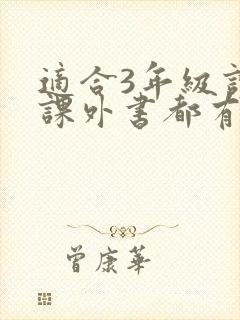 適合3年級
課外書都有
曾康華